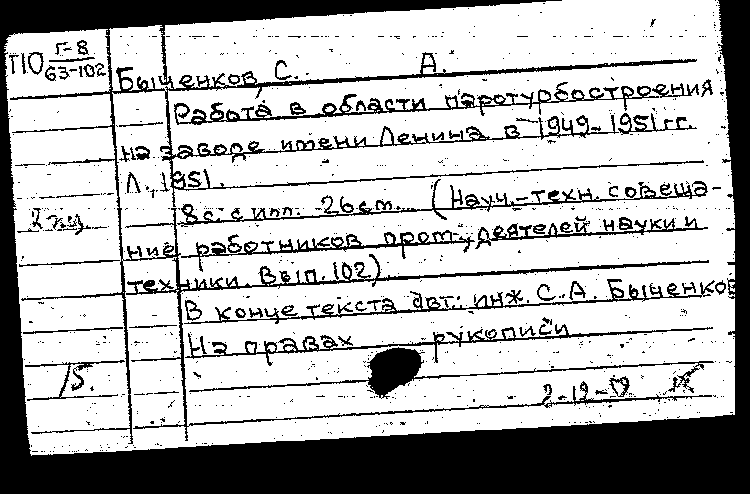 П10 Г-8
63-102
Быченков, С. А.
Работа в области паротурбостроения
на заводе имени Ленина в 1949-1951 гг.
Л., 1951.
8 с. с илл. 26 см. (Науч.-техн. совеща-
ние работников пром., деятелей науки и
техники. Вып. 102).
В конце текста авт.: инж. С.А. Быченков
На правах рукописи
15.